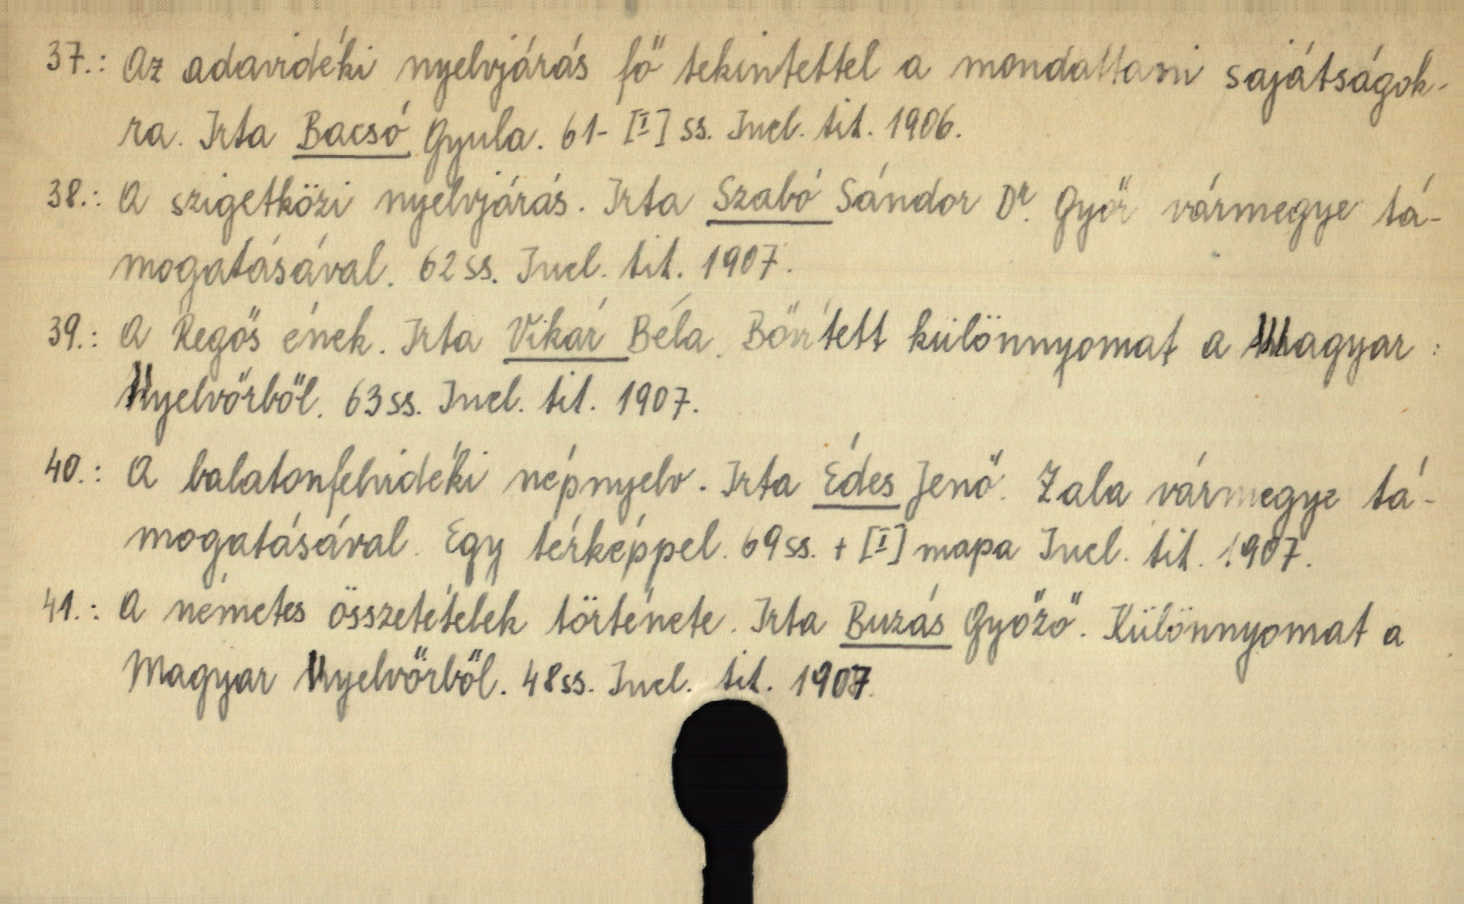 37.: Az adavidéki nyelvjárás fő tekintettel a mondattani sajátságok-
ra. Irta Bacsó Gyula. 61- [I] ss. Incl. tit. 1906.
38.: A szigetközi nyelvjárás. Irta Szabó Sándor Dr. Győr vármegye tá-
mogatásával. 62 ss. Incl. tit. 1907.
39.: A Regős ének. Irta Vikár Béla. Bőített különnyomat a Magyar
Nyelvőrből. 63 ss. Incl. tit. 1907.
40.: A balatonfelvidéki népnyelv. Irta Édes Jenő. Zala vármegye tá-
mogatásával. Egy térképpel. 69 ss. + [I] mapa Incl. tit. 1907.
41.: A németes összetételek története. Irta Buzás Győző. Különnyomat a
Magyar Nyelvőrből. 48 ss. Incl. tit. 1907.